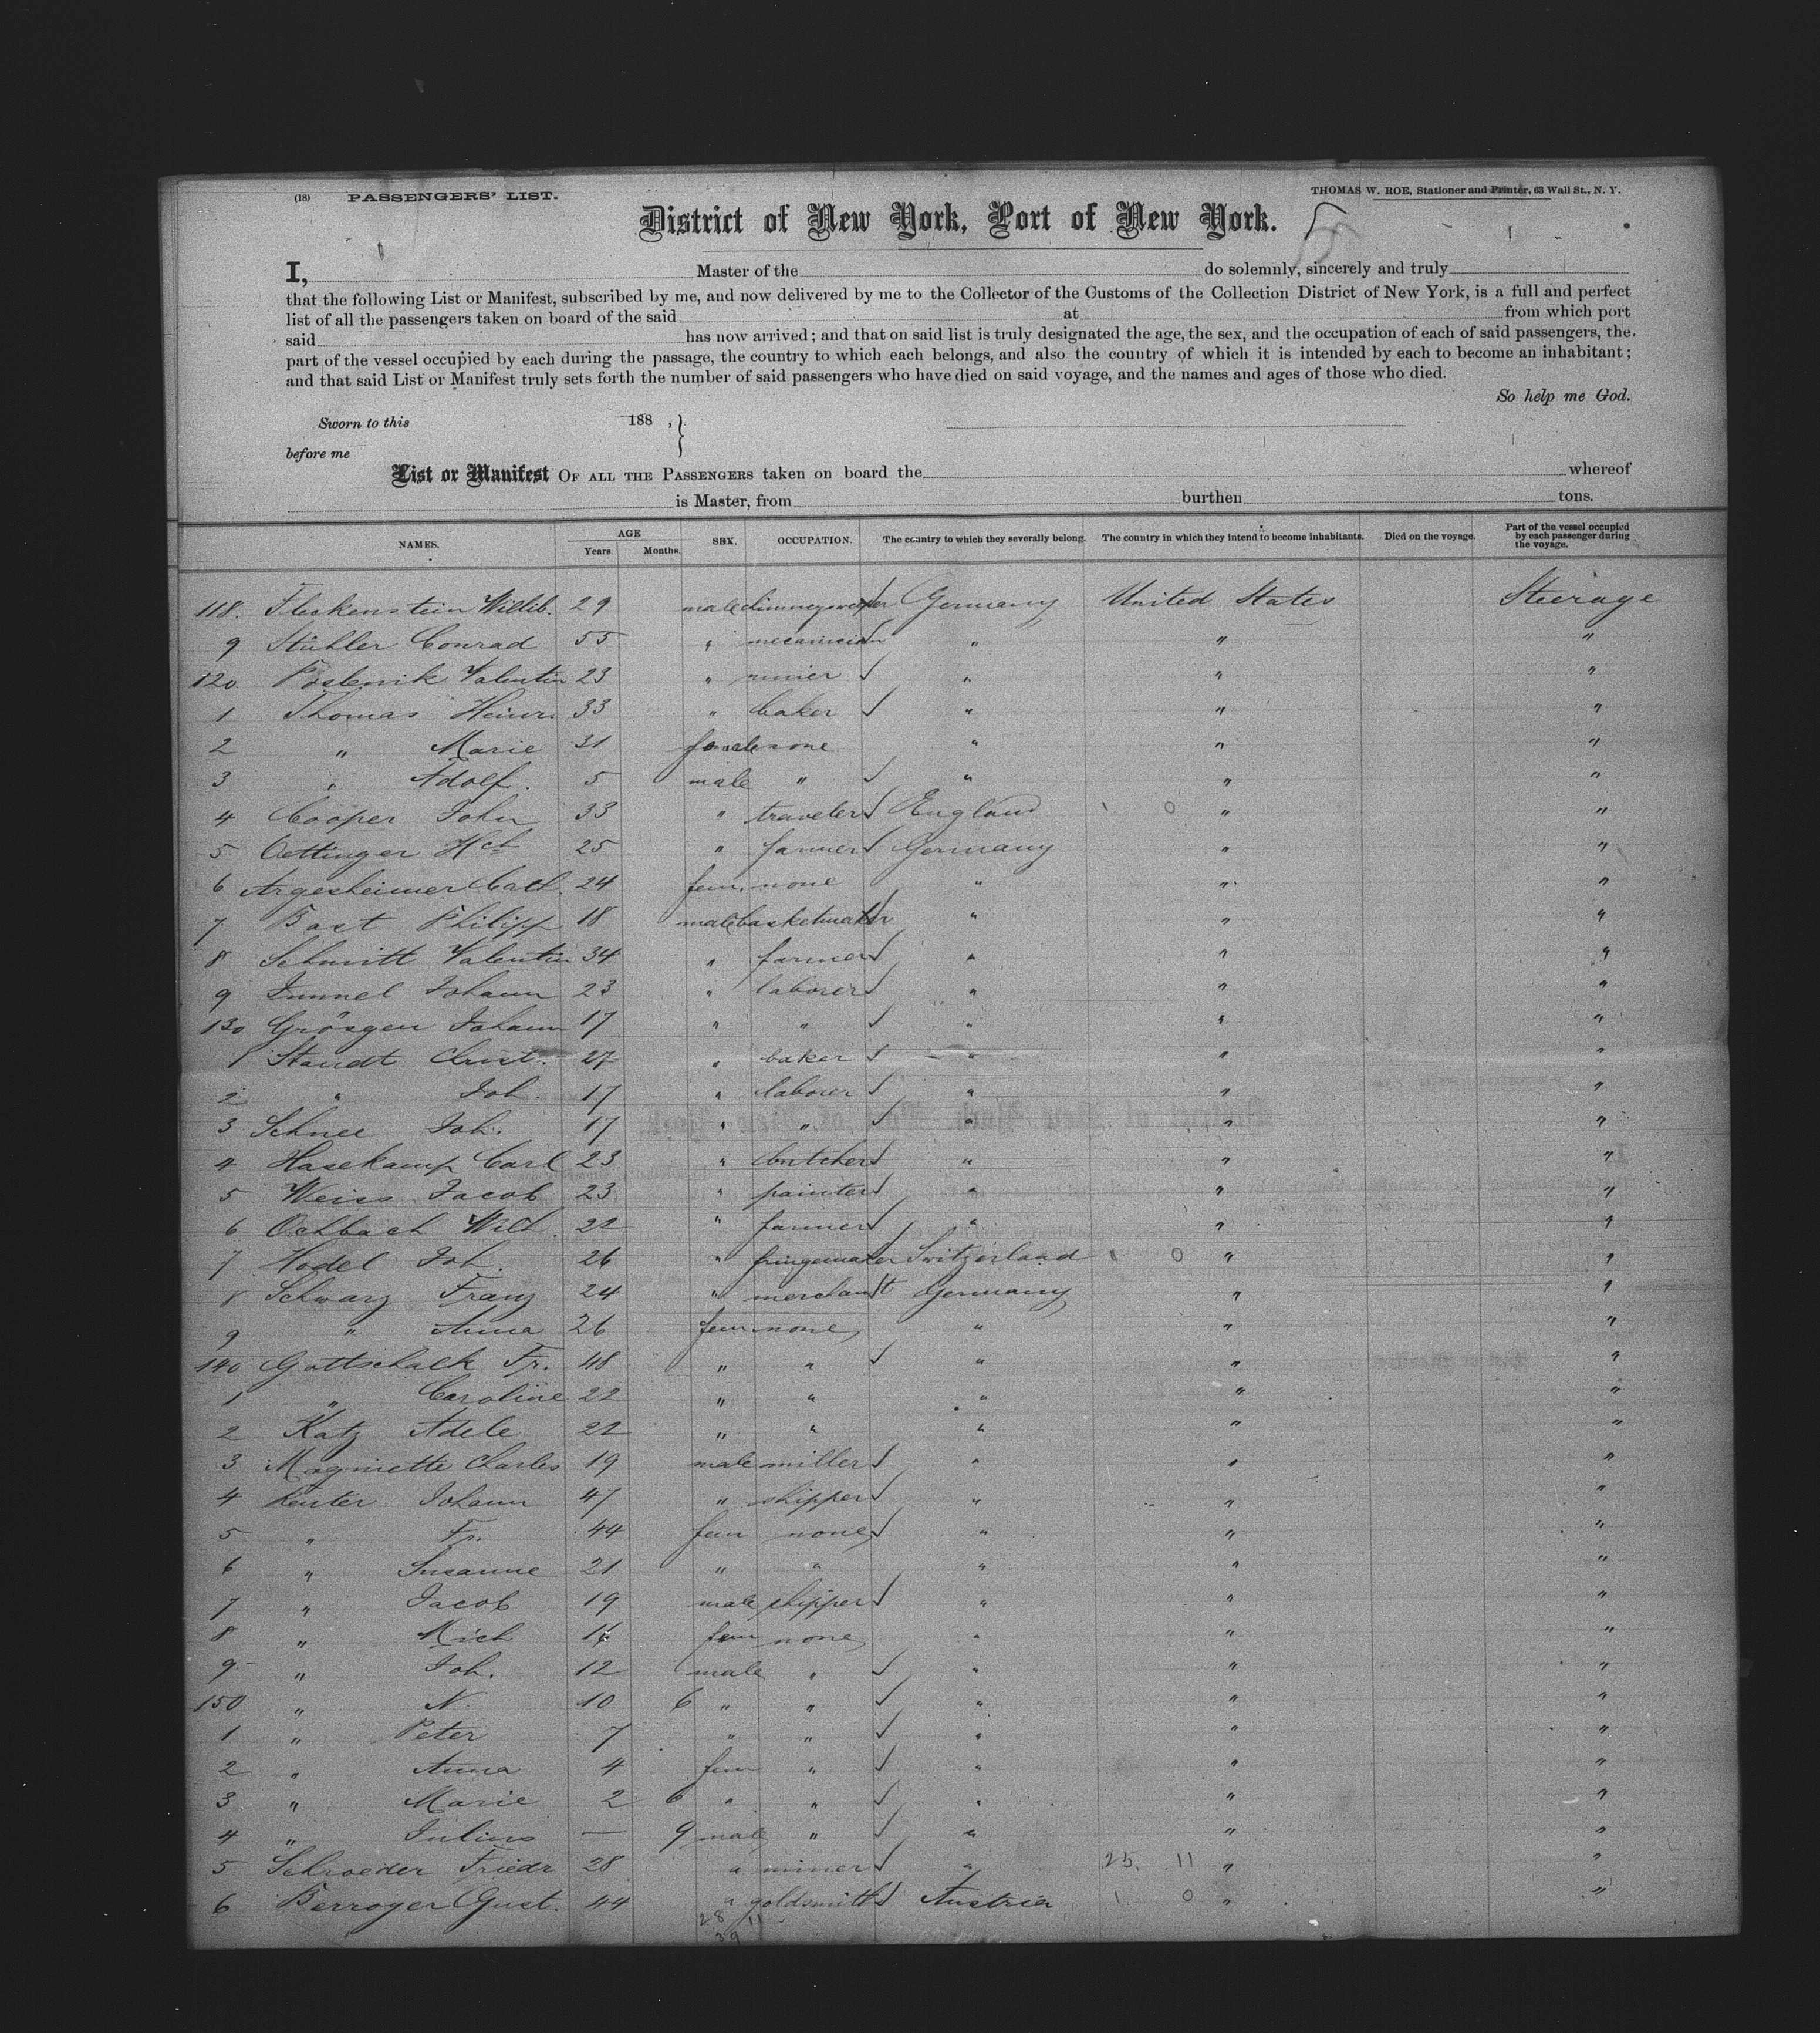 (18) PASSENGERS' LIST. THOMAS W. ROE, Stationer and Printer, 63 Wall St., N. Y.
District of New York, Port of New York. 5
I, Master of the do solemnly, sincerely and truly
that the following List or Manifest, subscribed by me, and now delivered by me to the Collector of the Customs of the Collection District of New York, is a full and perfect
list of all the passengers taken on board of the said at from which port
said has now arrived; and that on said list is truly designated the age, the sex, and the occupation of each of said passengers, the
part of the vessel occupied by each during the passage, the country to which each belongs, and also the country of which it is intended by each to become an inhabitant;
and that said List or Manifest truly sets forth the number of said passengers who have died on said voyage, and the names and ages of those who died.
So help me God.
Sworn to this 188 , }
before me
List or Manifest OF ALL THE PASSENGERS taken on board the whereof
is Master, from burthen tons.
NAMES. AGE Years. Months. SEX. OCCUPATION. The country to which they severally belong. The country in which they intend to become inhabitants. Died on the voyage. Part of the vessel occupied by each passenger during the voyage.
118. Fleckenstein Willib. 29 male chimneysweper Germany United States Steerage
9 Stühler Conrad 55 " mecanician " " "
120. Valentin 23 " " " "
1 Thomas Heinr. 33 " baker " " "
2 " Marie 31 female none " " "
3 " Adolf. 5 male " " " "
4 Cooper John 33 " traveler England 1 0 " "
5 Oettinger Hch 25 " farmer Germany " "
6 Argesheimer Cath. 24 fem. none " " "
7 Bast Philipp 18 male basketmaker " " "
8 Schmitt Valentin 34 " farmer " " "
9 Johann 23 " laborer " " "
130 Grösgen Johann 17 " " " " "
1 Staudt Christ. 27 " baker " " "
2 " Joh. 17 " laborer " " "
3 Schnee Joh. 17 " " " " "
4 Hasekamp Carl 23 " butcher " " "
5 Weiss Jacob 23 " painter " " "
6 Ochbach Wilh. 22 " farmer " " "
7 Hodel Joh. 26 " fringemaker Switzerland 1 0 " "
8 Schwarz Franz 24 " merchant Germany " "
9 " Anna 26 fem none " " "
140 Gottschalk Fr. 48 " " " " "
1 " Caroline 22 " " " " "
2 Katz Adele 22 " " " " "
3 Magniette Charles 19 male miller " " "
4 Reuter Johann 47 " shipper " " "
5 " Fr. 44 fem none " " "
6 " Susanne 21 " " " " "
7 " Jacob 19 male shipper " " "
8 " Mich fem none " " "
9 " Joh. 12 male " " " "
150 " N. 10 6 " " " " "
1 " Peter 7 " " " " "
2 " Anna 4 fem " " " "
3 " Marie 2 6 " " " " "
4 " Julius — 9 male " " " "
5 Schroeder Friedr 28 " miner " 25. 11 " "
6 Berroyer Gust. 44 " goldsmith Austria 1 0 " "
28 11
39